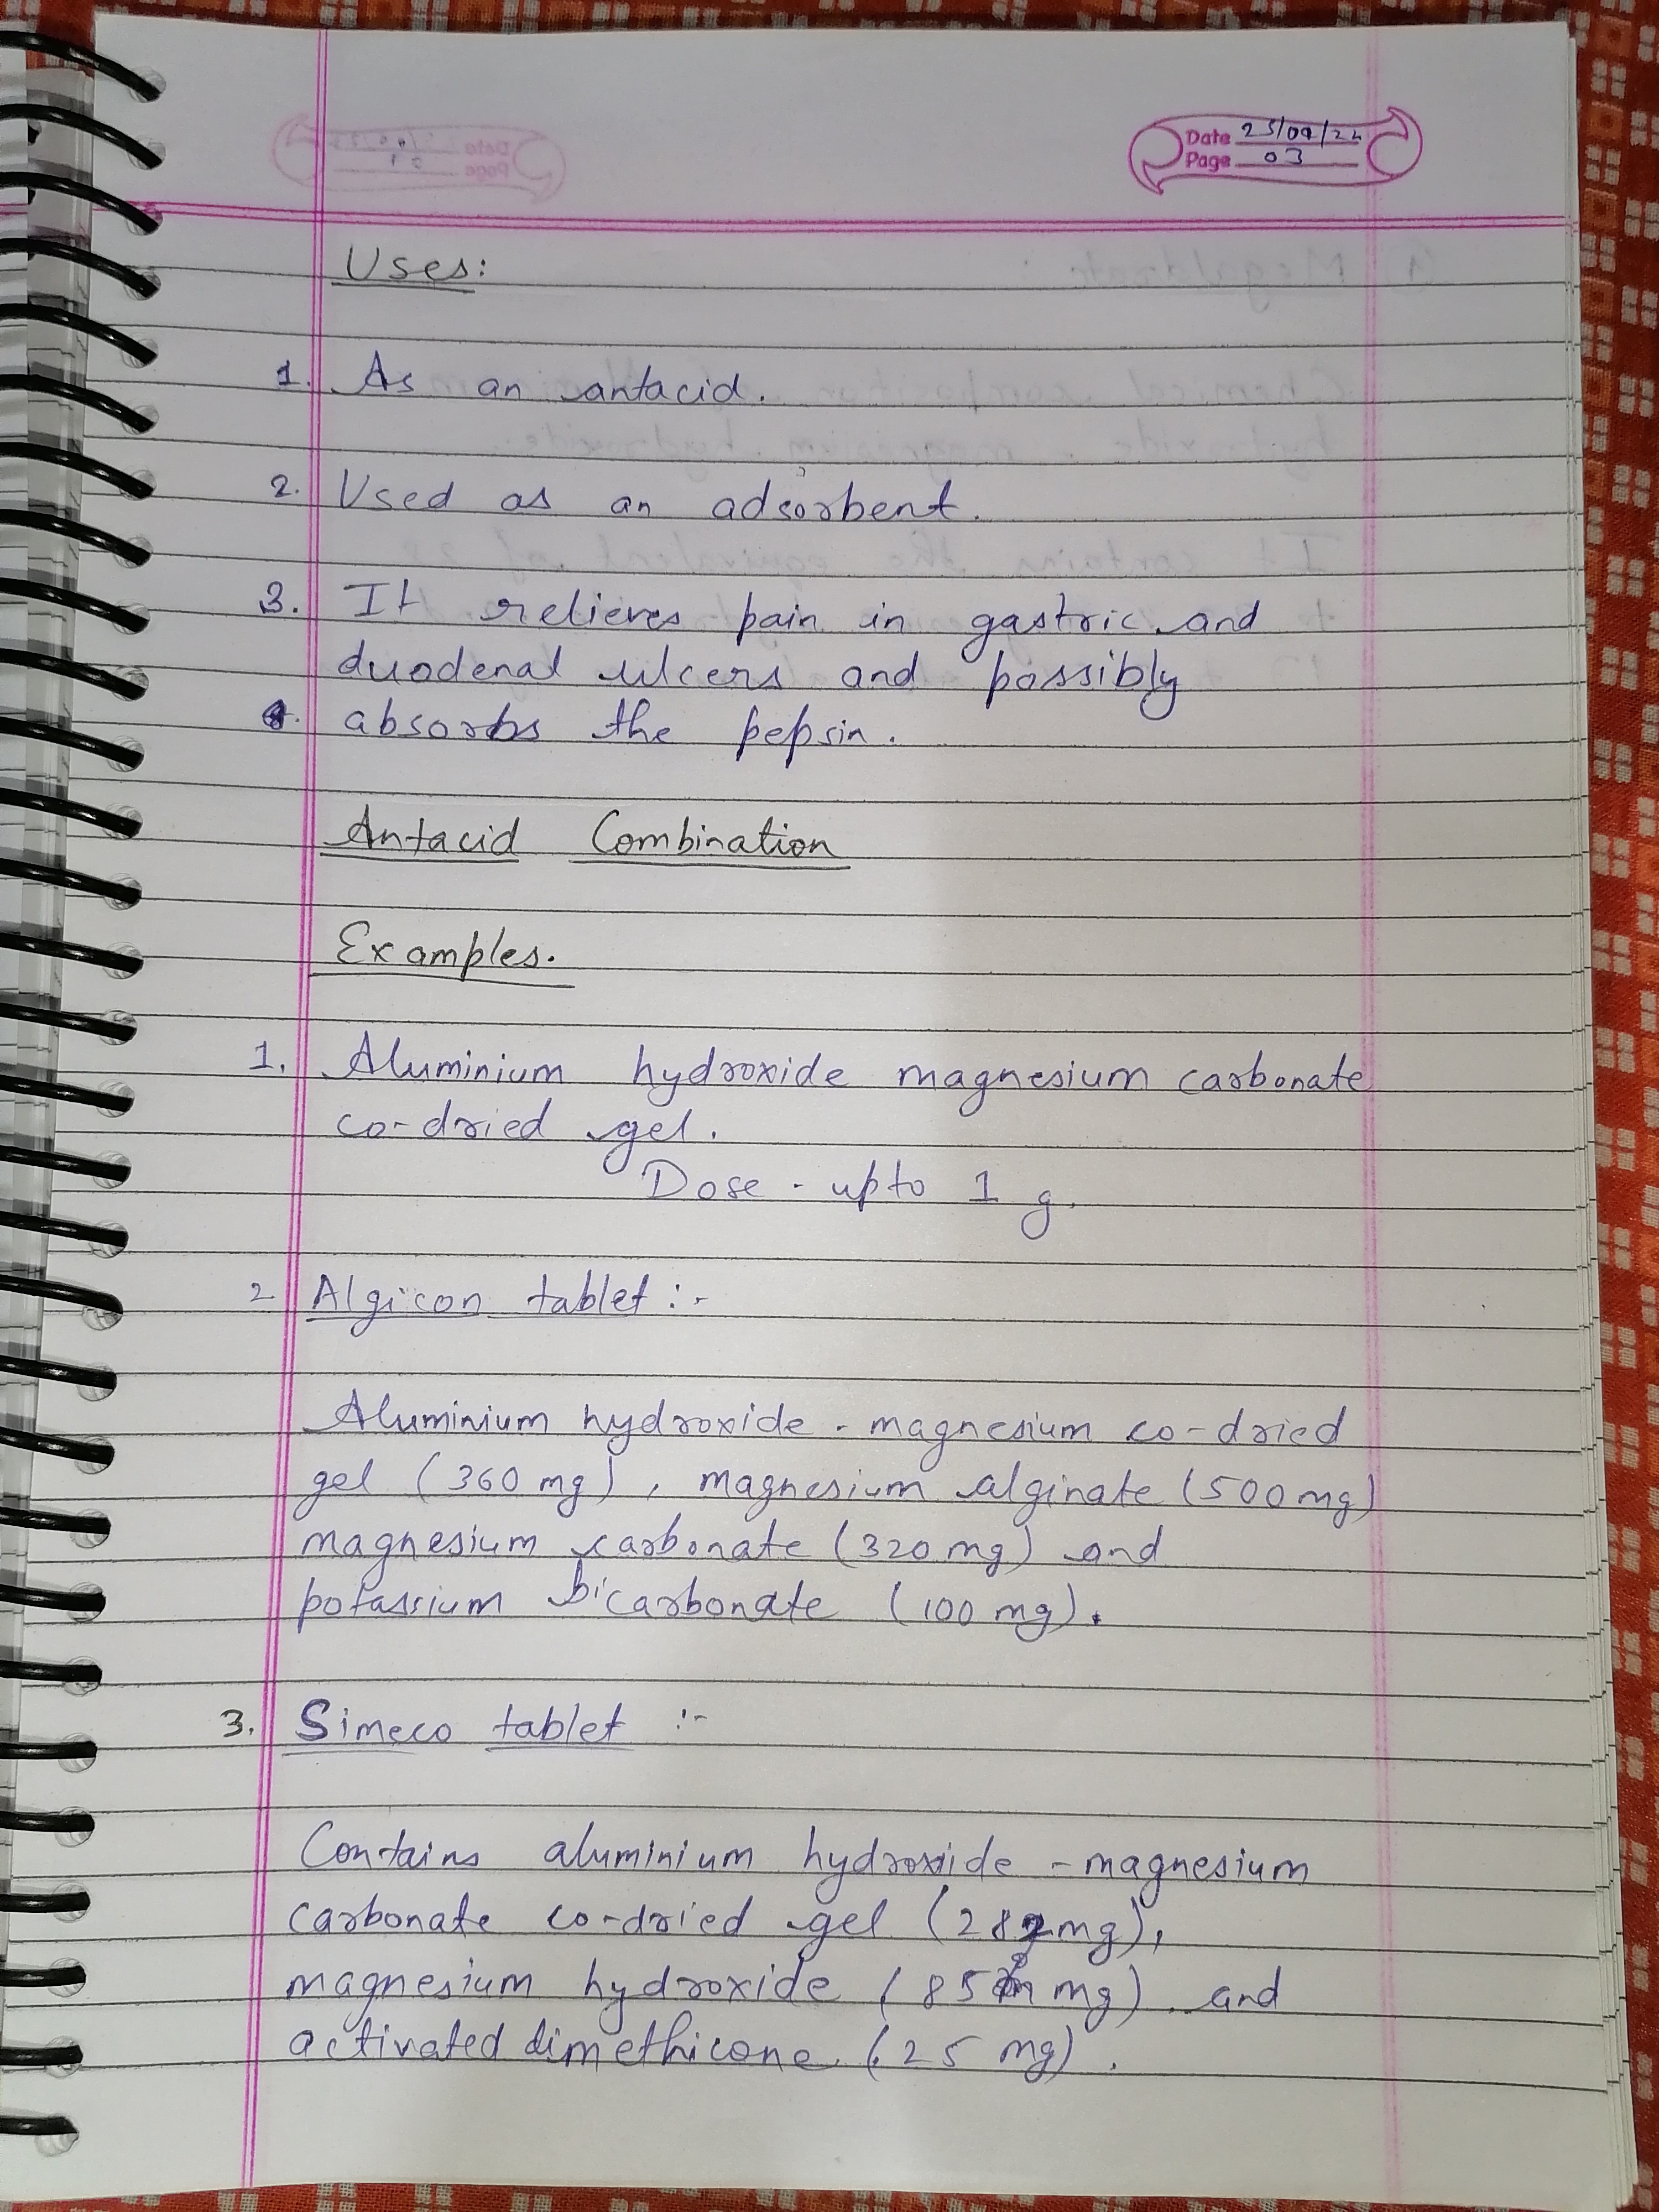 Date 25/09/24
Page 03
Uses:
1. As an antacid.
2. Used as an adsorbent.
3. It relieves pain in gastric and
duodenal ulcers and possibly
absorbs the pepsin.
Antacid Combination
Examples.
1. Aluminium hydroxide magnesium carbonate
co-dried gel.
Dose - upto 1 g.
2 Algicon tablet :-
Aluminium hydroxide - magnesium co-dried
gel (360 mg), magnesium alginate (500 mg)
magnesium carbonate (320 mg) and
potassium bicarbonate (100 mg).
3. Simeco tablet :-
Contains aluminium hydroxide - magnesium
carbonate co-dried gel (282 mg),
magnesium hydroxide (85 mg) and
activated dimethicone (25 mg).